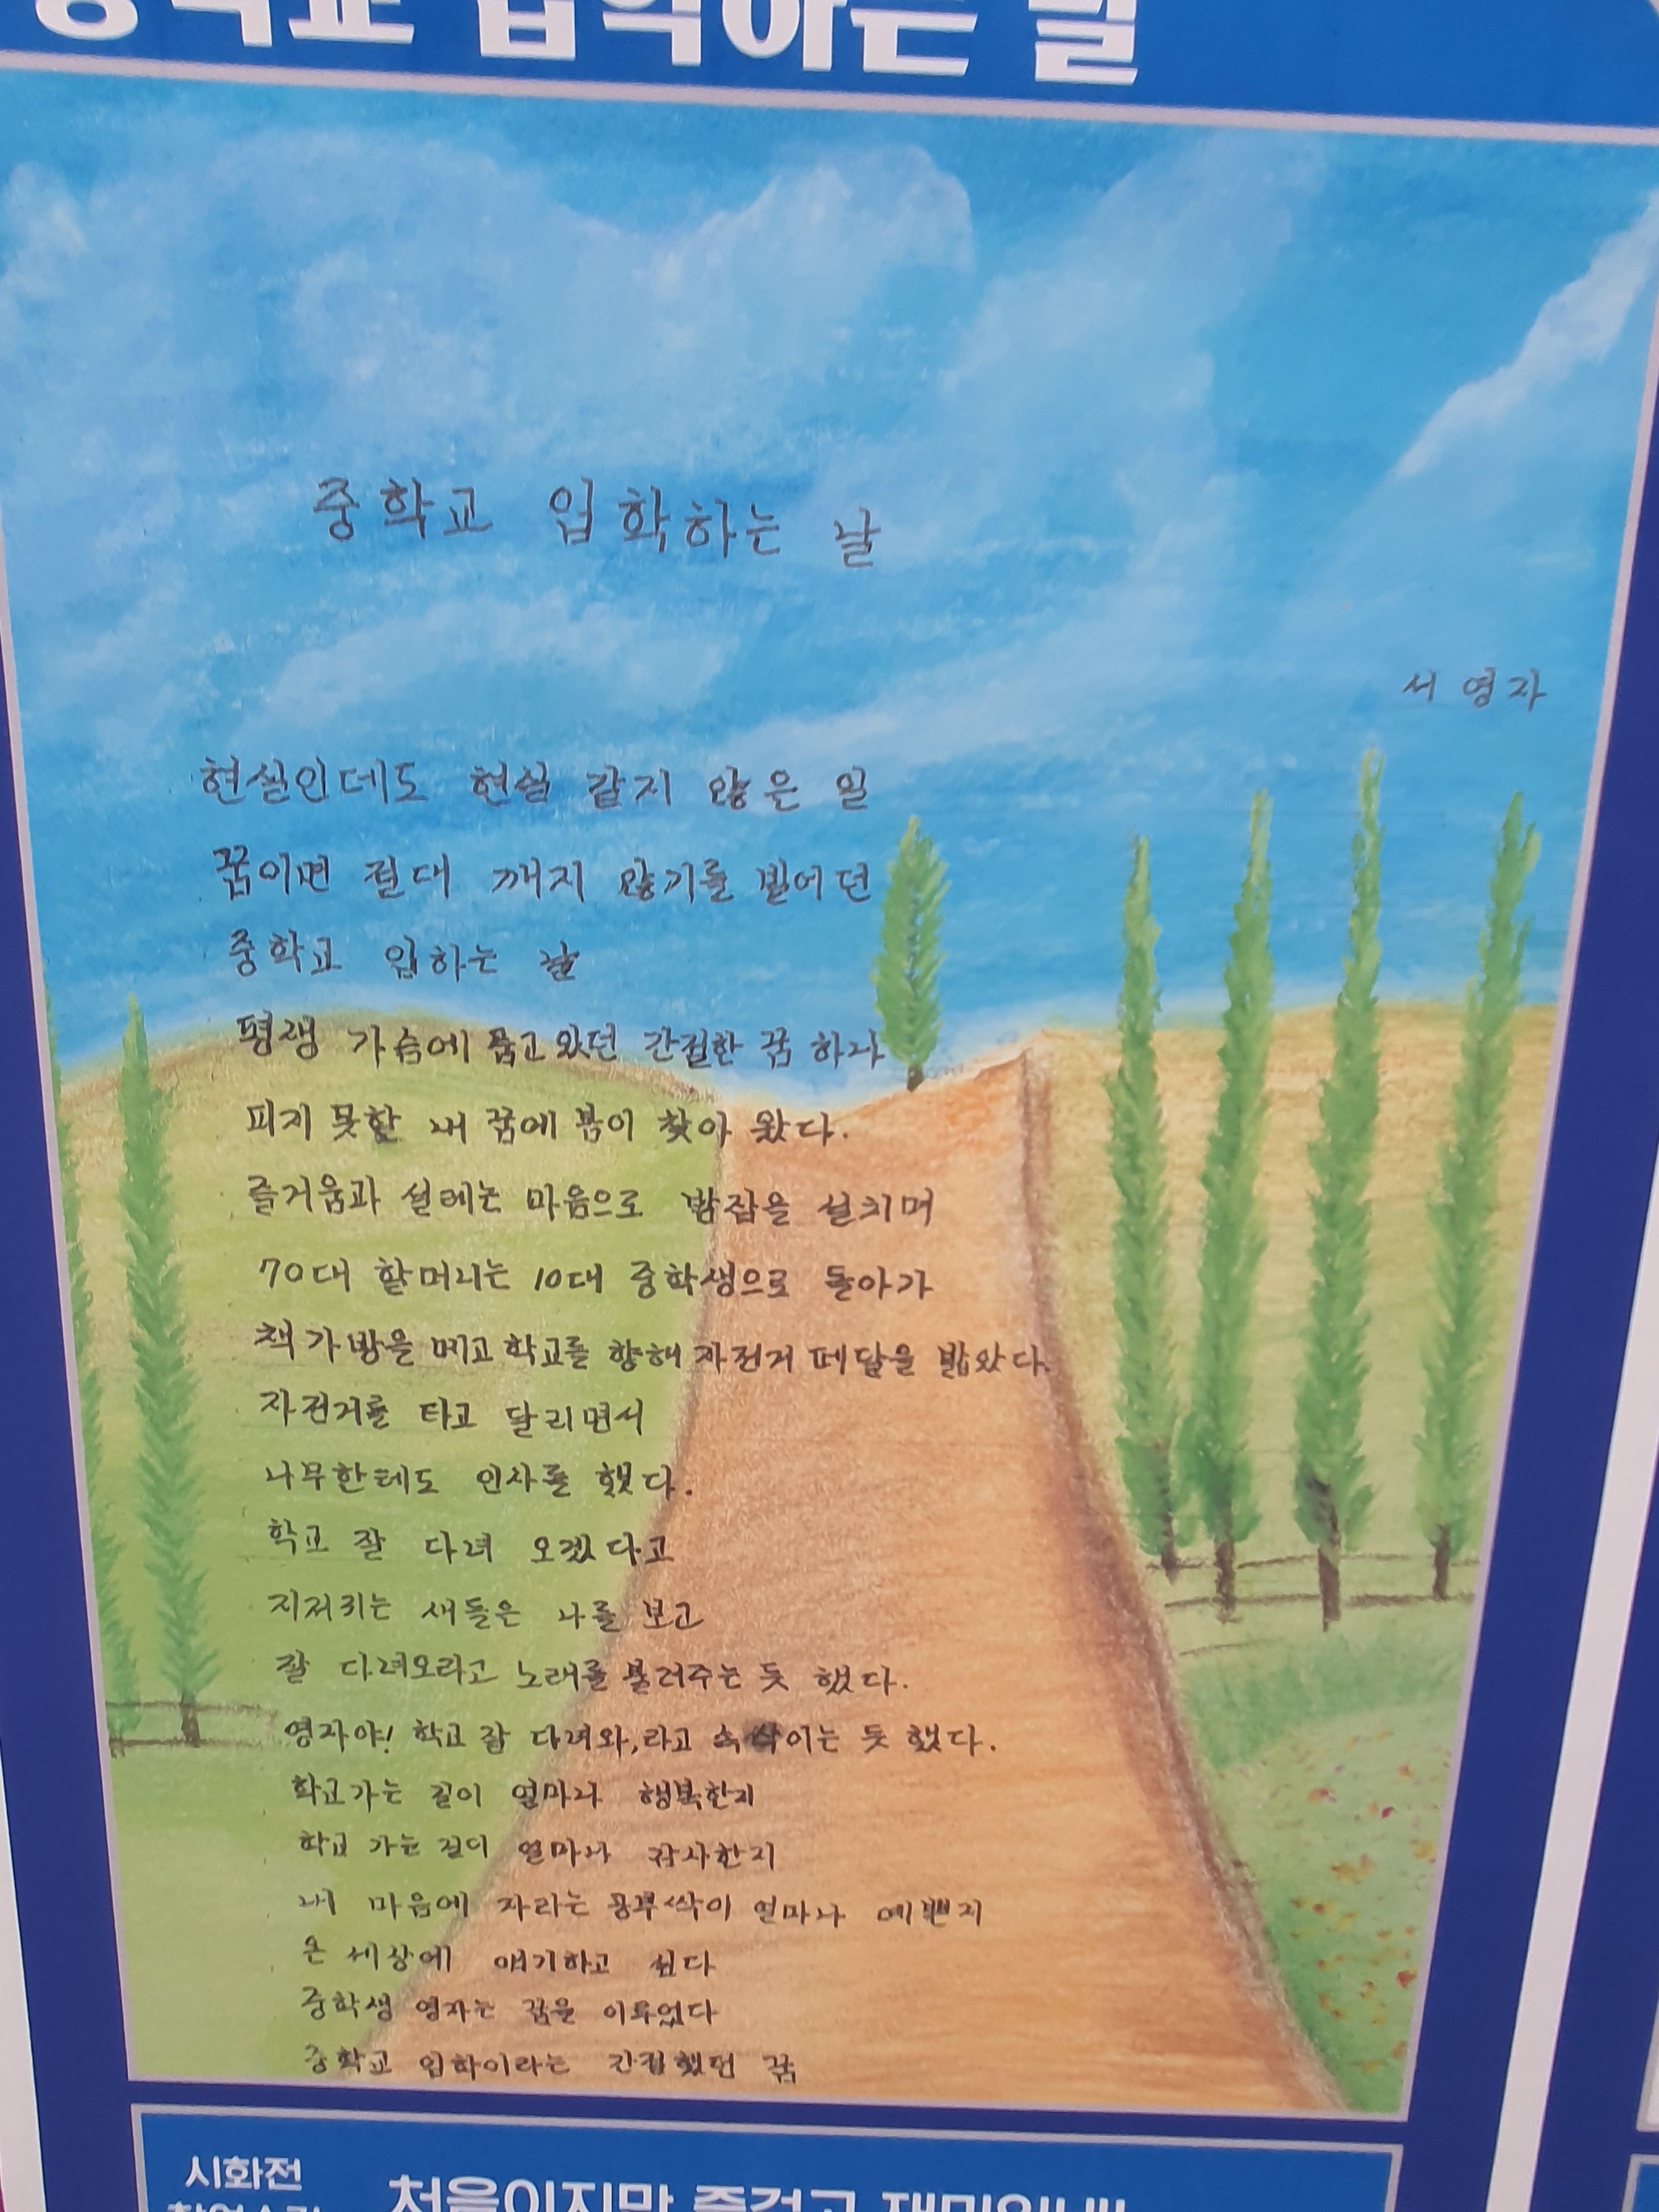 중학교 입학하는 날
중학교 입학하는 날
서영자
현실인데도 현실 같지 않은 일
꿈이면 절대 깨지 않기를 빌어던
중학교 입하는 날
평생 가슴에 품고 왔던 간절한 꿈 하나
피지 못할 내 꿈에 봄이 찾아 왔다.
즐거움과 설레는 마음으로 밤잠을 설치며
70대 할머니는 10대 중학생으로 돌아가
책가방을 메고 학교를 향해 자전거 페달을 밟았다.
자전거를 타고 달리면서
나무한테도 인사를 했다.
학교 잘 다녀 오겠다고
지저귀는 새들은 나를 보고
잘 다녀오라고 노래를 불러주는 듯 했다.
영자야! 학교 잘 다녀와,라고 속삭이는 듯 했다.
학교가는 길이 얼마나 행복한지
학교 가는 길이 얼마나 감사한지
내 마음에 자라는 공부싹이 얼마나 예쁜지
온 세상에 얘기하고 싶다
중학생 영자는 꿈을 이루었다
중학교 입학이라는 간절했던 꿈
시화전
처음이지만 즐겁고